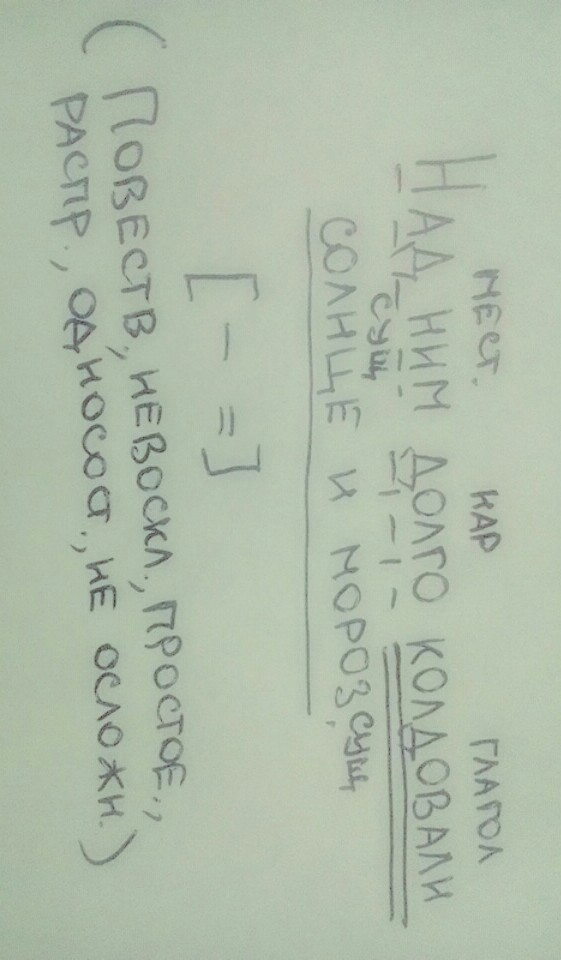 МЕСТ. НАР ГЛАГОЛ
НАД НИМ ДОЛГО КОЛДОВАЛИ
сущ сущ
СОЛНЦЕ И МОРОЗ.
[ — = ]
( ПОВЕСТВ., НЕВОСКЛ., ПРОСТОЕ.,
РАСПР., ОДНОСОСТ., НЕ ОСЛОЖН. )